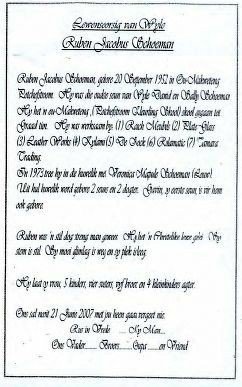 Lewensoorsig van Wyle
Ruben Jacobus Schoeman
Ruben Jacobus Schoeman, gebore 20 September 1952 in Ou-Makweteng
Potchefstroom. Hy was die oudste seun van Wyle Dawid en Sally Schoeman
Hy het in ou-Makweteng, (Potchefstroom Kleurling Skool) skool gegaan tot
Graad tien. Hy was werksaam by: (1) Rauch Meubels (2) Plate Glass
(3) Leather Works (4) Xylam (5) De Jock (6) Relamatic (7) Zamara
Trading.
In 1975 tree hy in die huwelik met Veronica Mapule Schoeman (Lenor).
Uit hul huwelik word gebore 2 seuns en 2 dogters. Gavin, sy eerste seun, is vir hem
ook gebore.
Ruben was 'n stil dog streng man gewees. Hy het 'n Christelike lewe gelei. Sy
stem is stil. Sy mooi glimlag is weg en sy plek is leeg.
Hy laat sy vrou, 5 kinders, vier susters, vyf broers en 4 kleinkinders agter.
Ons sal nooit 21 June 2007 met jou heen gaan vergeet nie.
Rus in Vrede ..... My Man.....
Ons Vader....... Broers.......Oupa ..... en Vriend